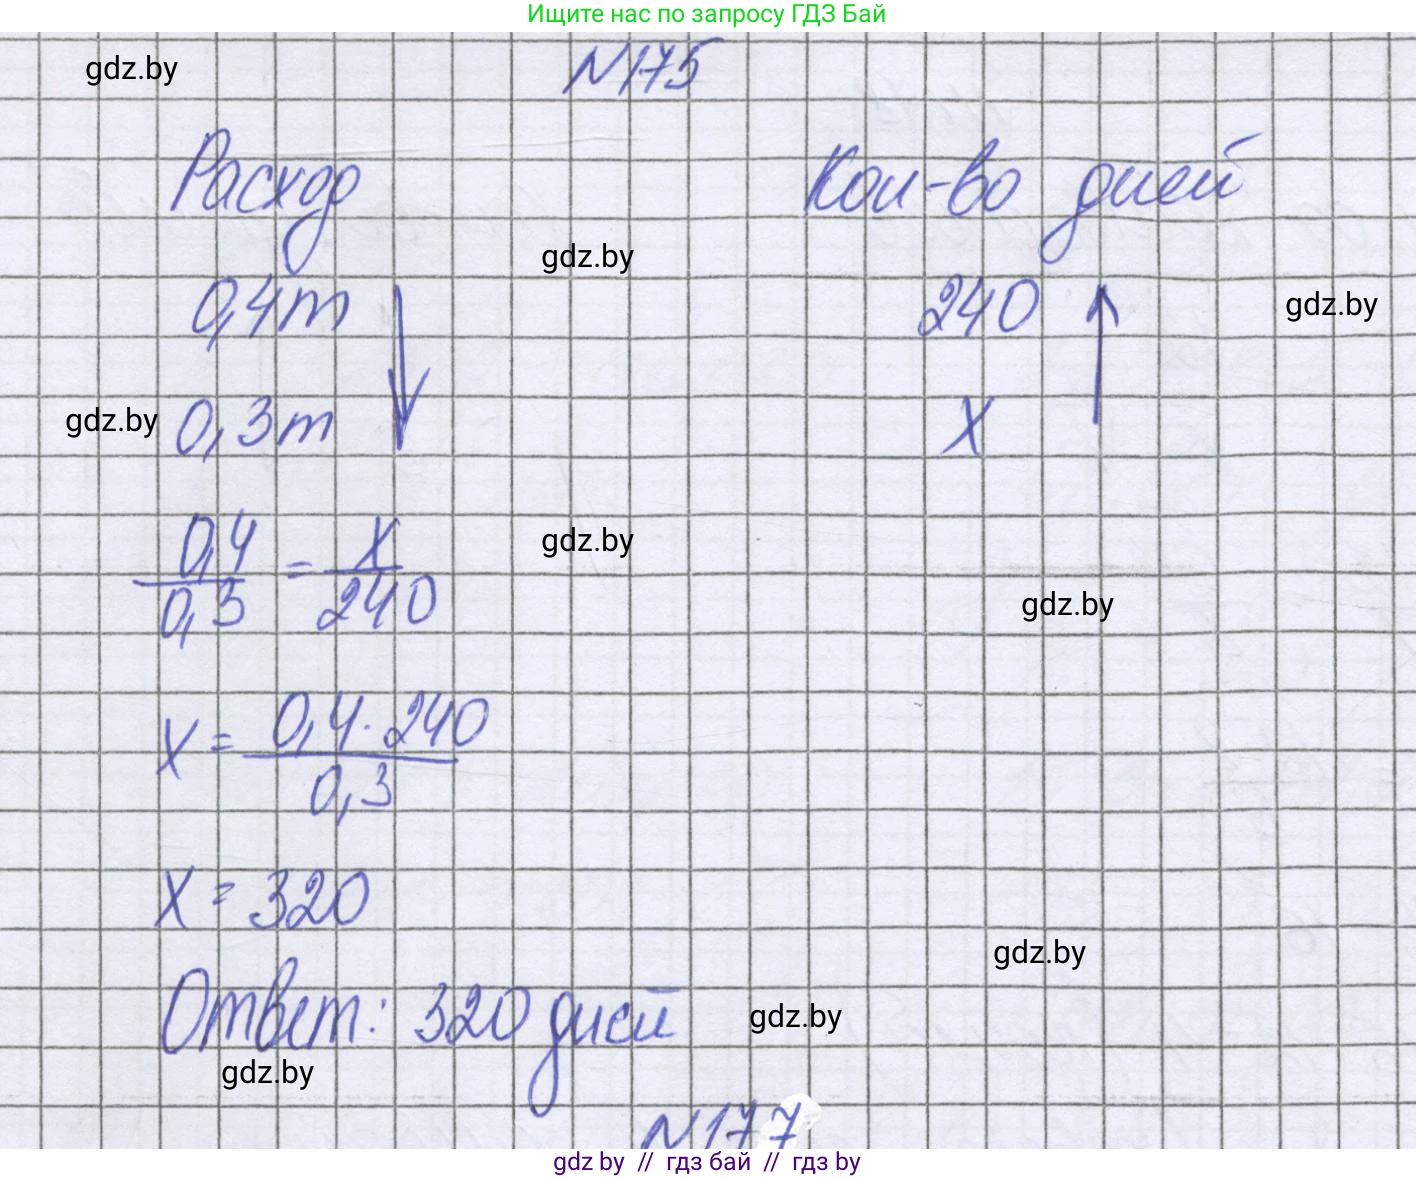 Ищите нас по запросу ГДЗ Бай
gdz.by
N175
Расход
Кол-во дней
gdz.by
0,4т
240
gdz.by
gdz.by
0,3т
x
0,4/0,3 = x/240
gdz.by
gdz.by
x = 0,4·240/0,3
x = 320
gdz.by
Ответ: 320 дней
gdz.by
gdz.by
N177
gdz by // гдз бай // гdз by